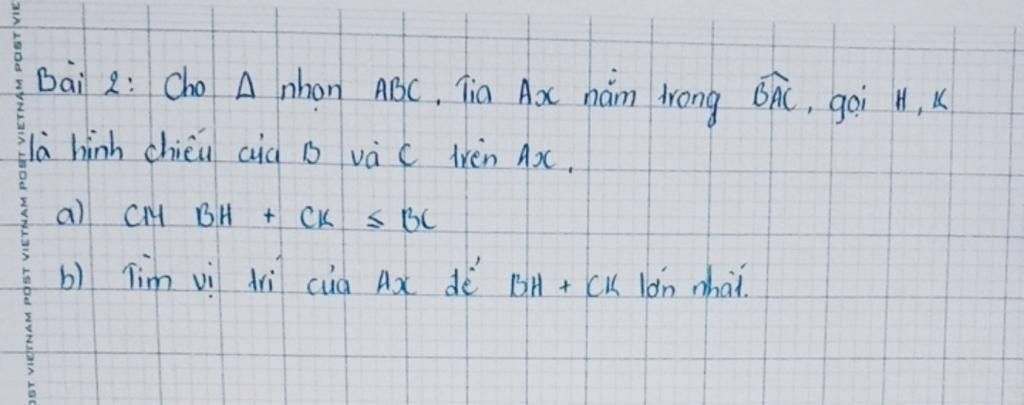 Bài 2: Cho Δ nhọn ABC. Tia Ax nằm trong $\widehat{BAC}$, gọi H, K
là hình chiếu của B và C trên Ax.
a) CM BH + CK ≤ BC
b) Tìm vị trí của Ax để BH + CK lớn nhất.
VIETNAM POST VIETNAM POST VIETNAM POST VIETNAM POST